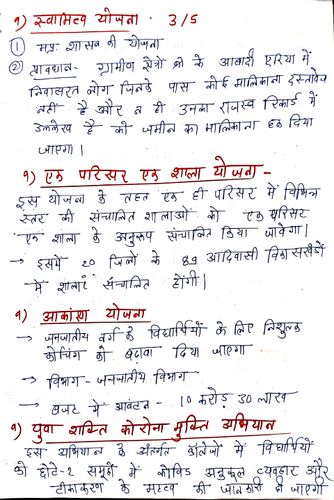 १) स्वामित्व योजना · 3/5
① म.प्र. शासन की योजना
② प्रावधान - ग्रामीण क्षेत्रों के आबादी एरिया में
निवासरत लोग जिनके पास कोई मालिकाना दस्तावेज
नहीं है और न ही उनका राजस्व रिकार्ड में
उल्लेख है को जमीन का मालिकाना हक दिया
जाएगा।
१) एक परिसर एक शाला योजना -
इस योजना के तहत एक ही परिसर में विभिन्न
स्तर की संचालित शालाओं को एक परिसर
एक शाला के अनुरूप संचालित किया जावेगा।
→ इसमें 20 जिलों के 89 आदिवासी विकासखंडों
में शालाएं संचालित होंगी।
१) आकांक्षा योजना
→ जनजातीय वर्ग के विद्यार्थियों के लिए निशुल्क
कोचिंग को बढ़ावा दिया जाएगा
→ विभाग - जनजातीय विभाग
→ बजट में आवंटन - 10 करोड़ 30 लाख
१) युवा शक्ति कोरोना मुक्ति अभियान
इस अभियान के अंतर्गत कॉलेजों में विद्यार्थियों
को छोटे-२ समूहों में कोविड अनुकूल व्यवहार और
टीकाकरण के महत्व की जानकारी दी जाएगी